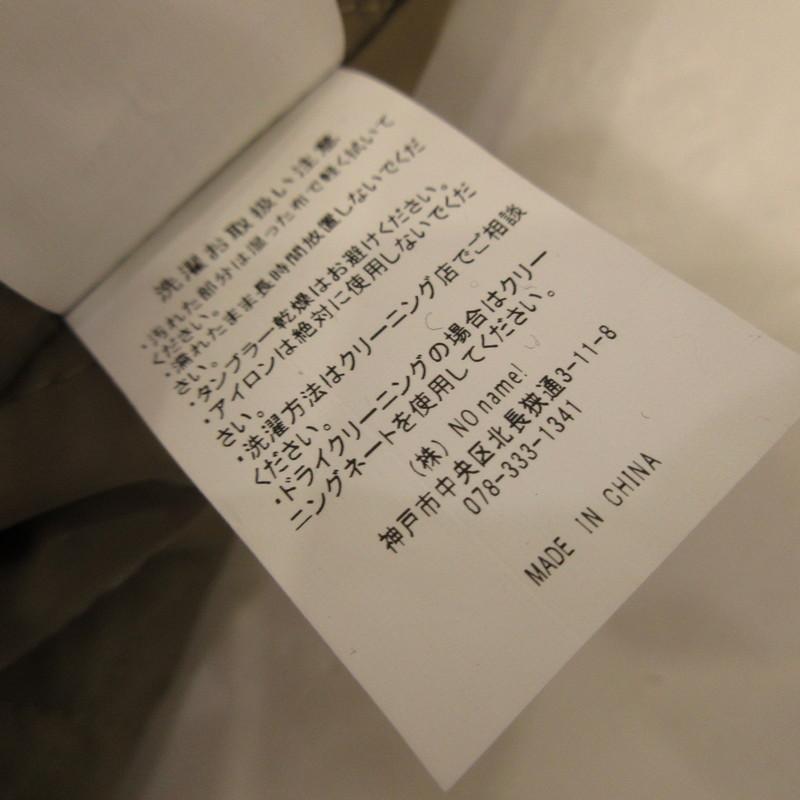 洗濯お取扱い注意
・汚れた部分は湿った布で軽く拭いて
ください。
・濡れたまま長時間放置しないでくだ
さい。
・タンブラー乾燥はお避けください。
・アイロンは絶対に使用しないでくだ
さい。
・洗濯方法はクリーニング店でご相談
ください。
・ドライクリーニングの場合はクリー
ニングネートを使用してください。
(株) NO name!
神戸市中央区北長狭通3-11-8
078-333-1341
MADE IN CHINA